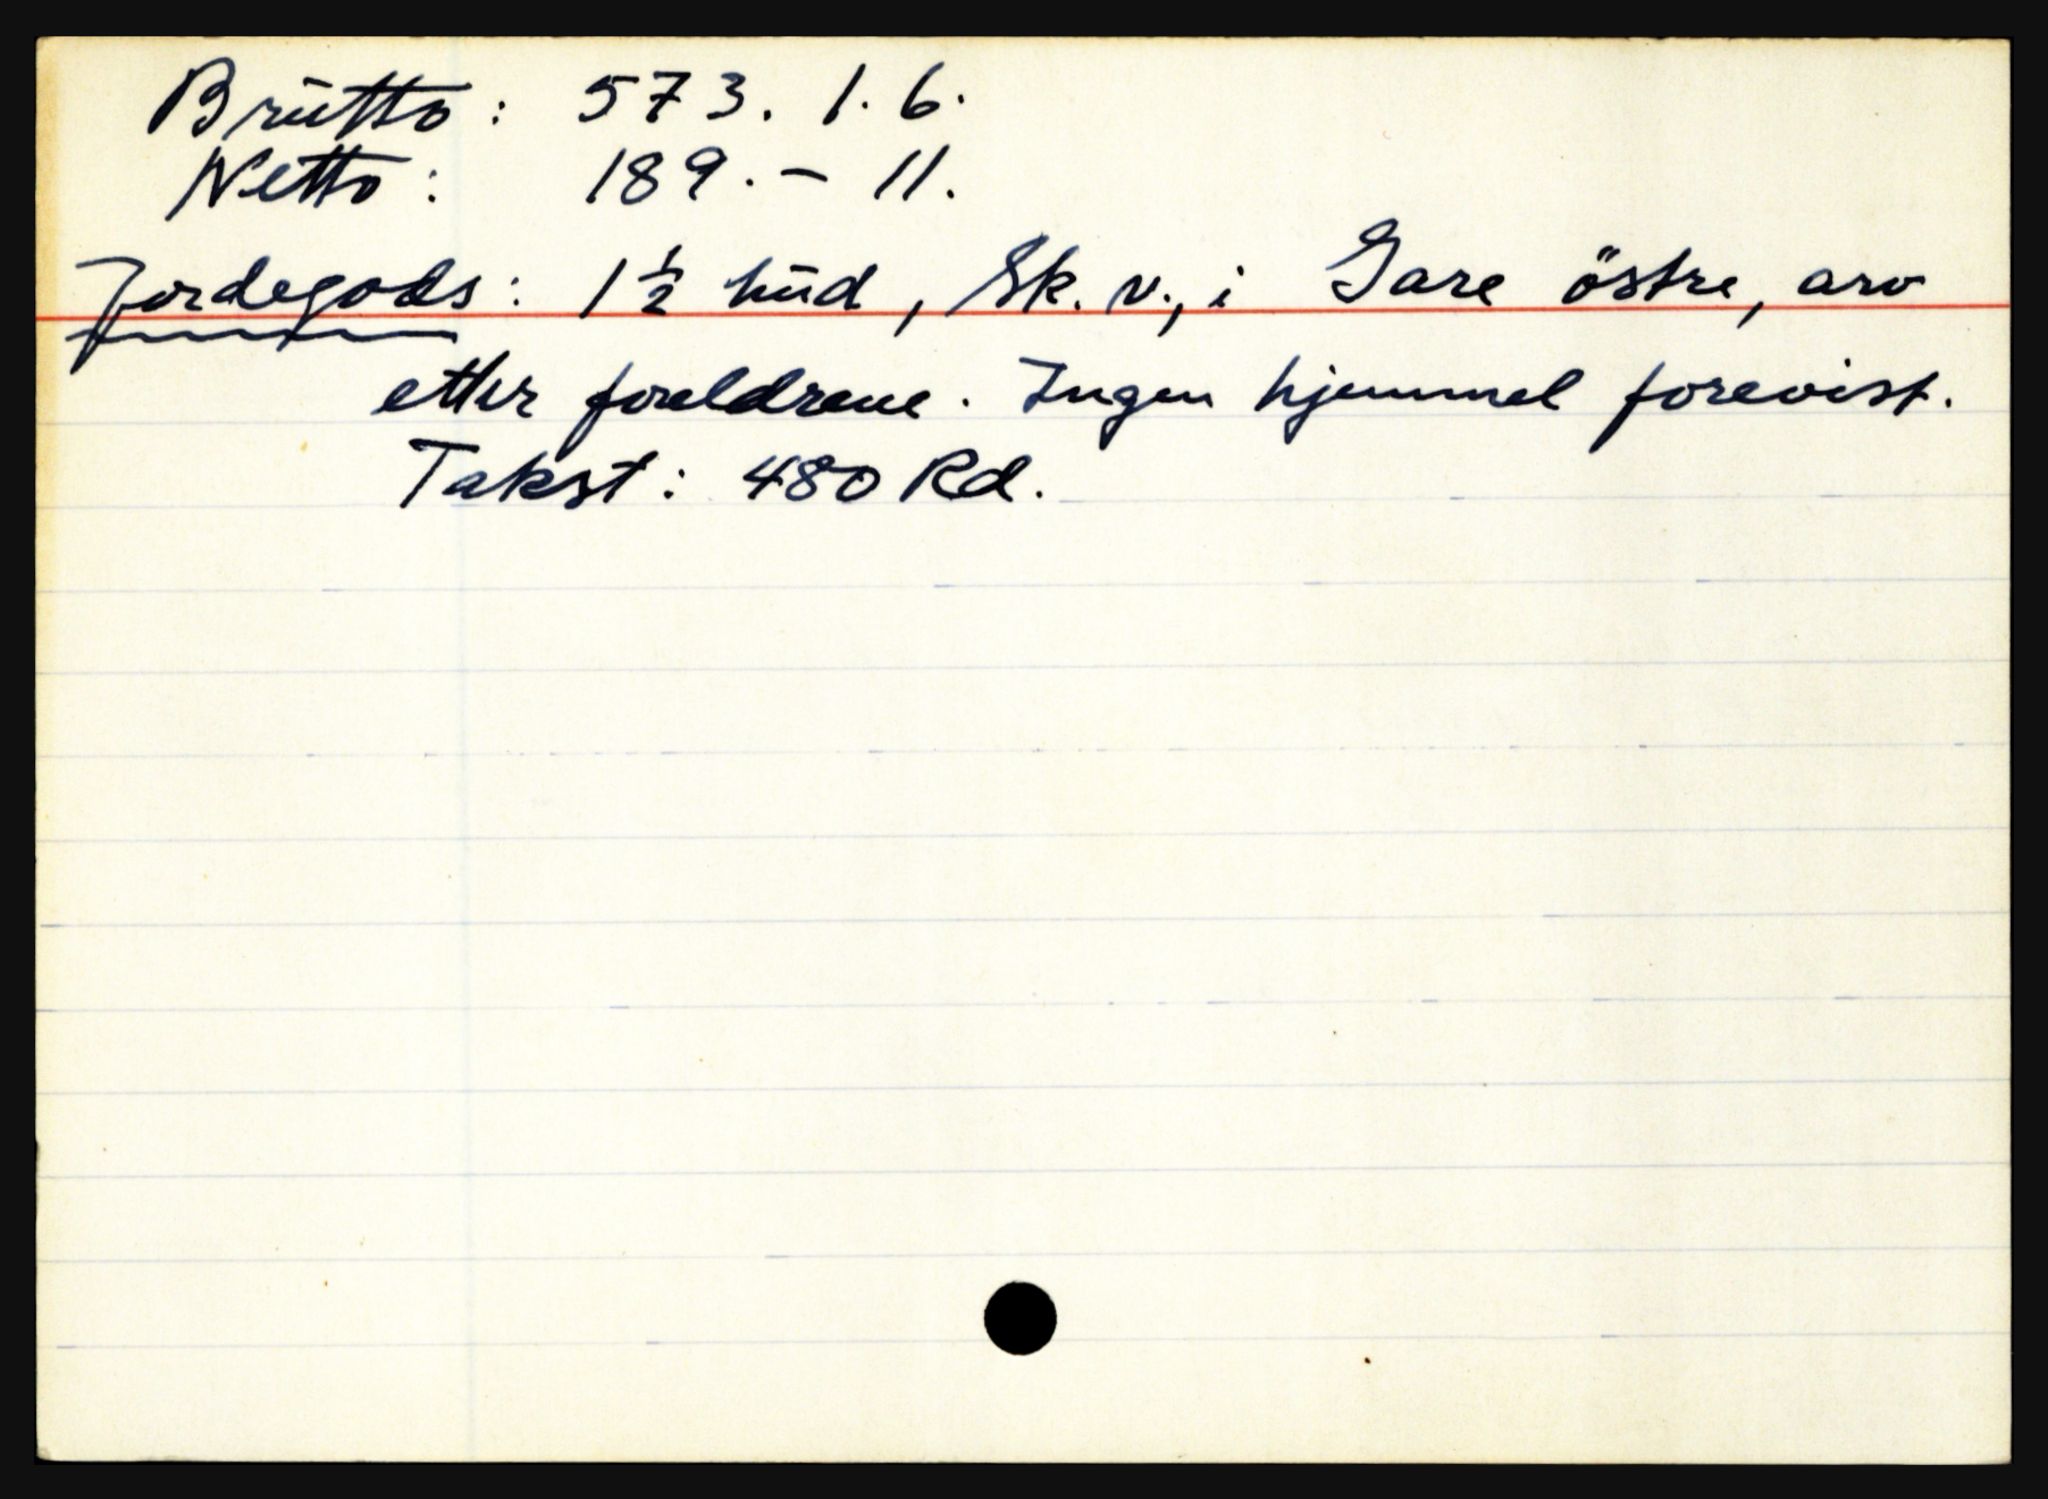 Brutto: 573. 1. 6.
Netto: 189. – 11.
Jordegods: 1 1/2 hud, Sk. v., i Gare östre, arv
etter foreldrene. Ingen hjemmel forevist.
Takst: 480 Rd.